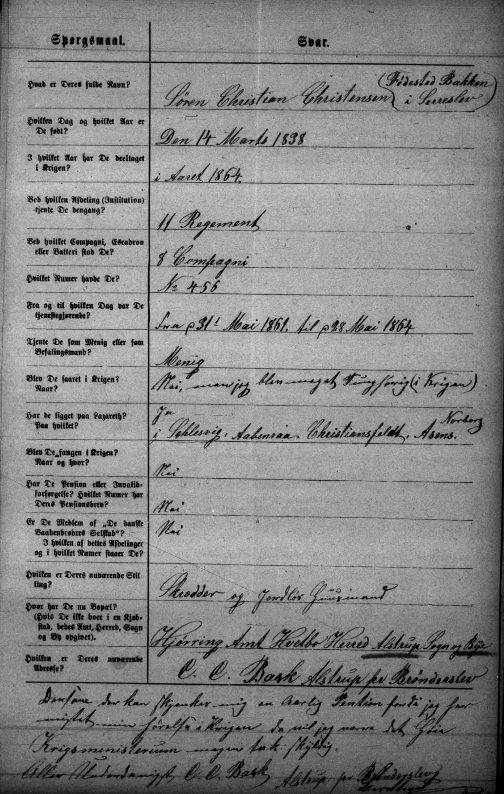 Spørgsmaal. Svar.
Hvad er Deres fulde Navn?
Søren Christian Christensen (Fødested Bakken
i Serreslev
Hvilken Dag og hvilket Aar er
De født?
Den 14 Marts 1838
I hvilket Aar har De deeltaget
i Krigen?
i Aaret 1864.
Ved hvilken Afdeling (Institution)
tjente De dengang?
11 Regement
Ved hvilket Compagni, Escadron
eller Batteri stod De?
8 Compagni
Hvilket Numer havde De?
No 456
Fra og til hvilken Dag var De
tjenestegjørende?
Fra d 31t Mai 1861. til d 28 Mai 1864
Tjente De som Menig eller som
Befalingsmand?
Menig
Blev De saaret i Krigen?
Naar?
Nei, men jeg blev meget Tunghørig (i Krigen)
Har De ligget paa Lazareth?
Paa hvilket?
Ja
i Sphlesvig, Aabenraa, Christiansfeldt, Asens. Norborg
Blev De fangen i Krigen?
Naar og hvor?
Nei
Har De Pension eller Invalid-
forsørgelse? Hvilket Numer har
Deres Pensionsbrev?
Nei
Er De Medlem af „De danske
Vaabenbrødres Selskab"?
I hvilken af dettes Afdelinger
og i hvilket Numer staaer De?
Nei
Hvilken er Deres nuværende Stil-
ling?
Skrædder og Jordløs Huusmand
Hvor har De nu Bopæl?
(Hvis De ikke boer i en Kjøb-
stad, bedes Amt, Herred, Sogn
og By opgivet).
Hjørring Amt Hvetbo Herred Alstrup Sogn og Bye
Hvilken er Deres nuværende
Adresse?
C. C. Bask Alstrup pr Brønderslev
Dersom der kan skjenkes mig en Aarlig Pention fordi jeg har
mistet min Hørelse i Krigen da vil jeg være det Høie
Krigsministerium megen tak skyldig.
Aller Underdanigst C. C. Bask Alstrup pr Brønderslev